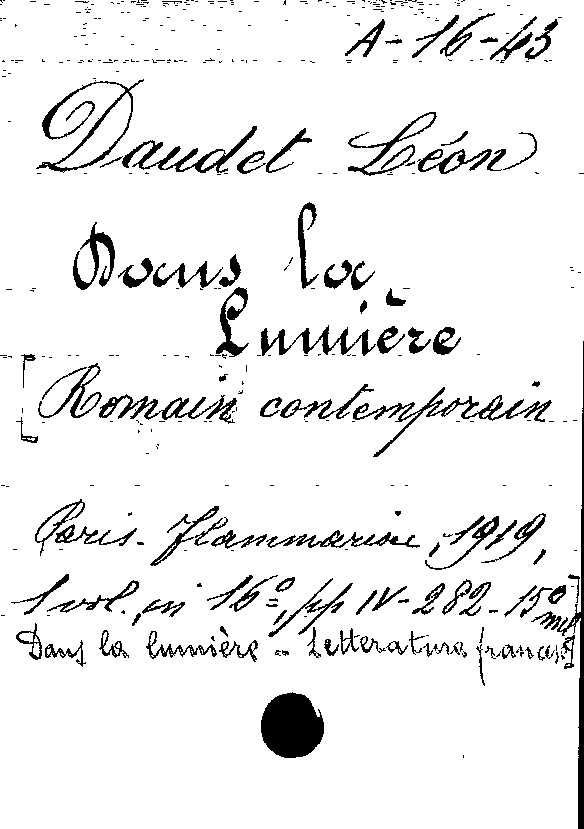 A-16-43
Daudet Léon
Dans la
Lumière
[Romain contemporain
Paris - Flammarion, 1919,
1 vol., in 16º, pp IV-282-15º mil]
Dans la lumière - Letteratura francese